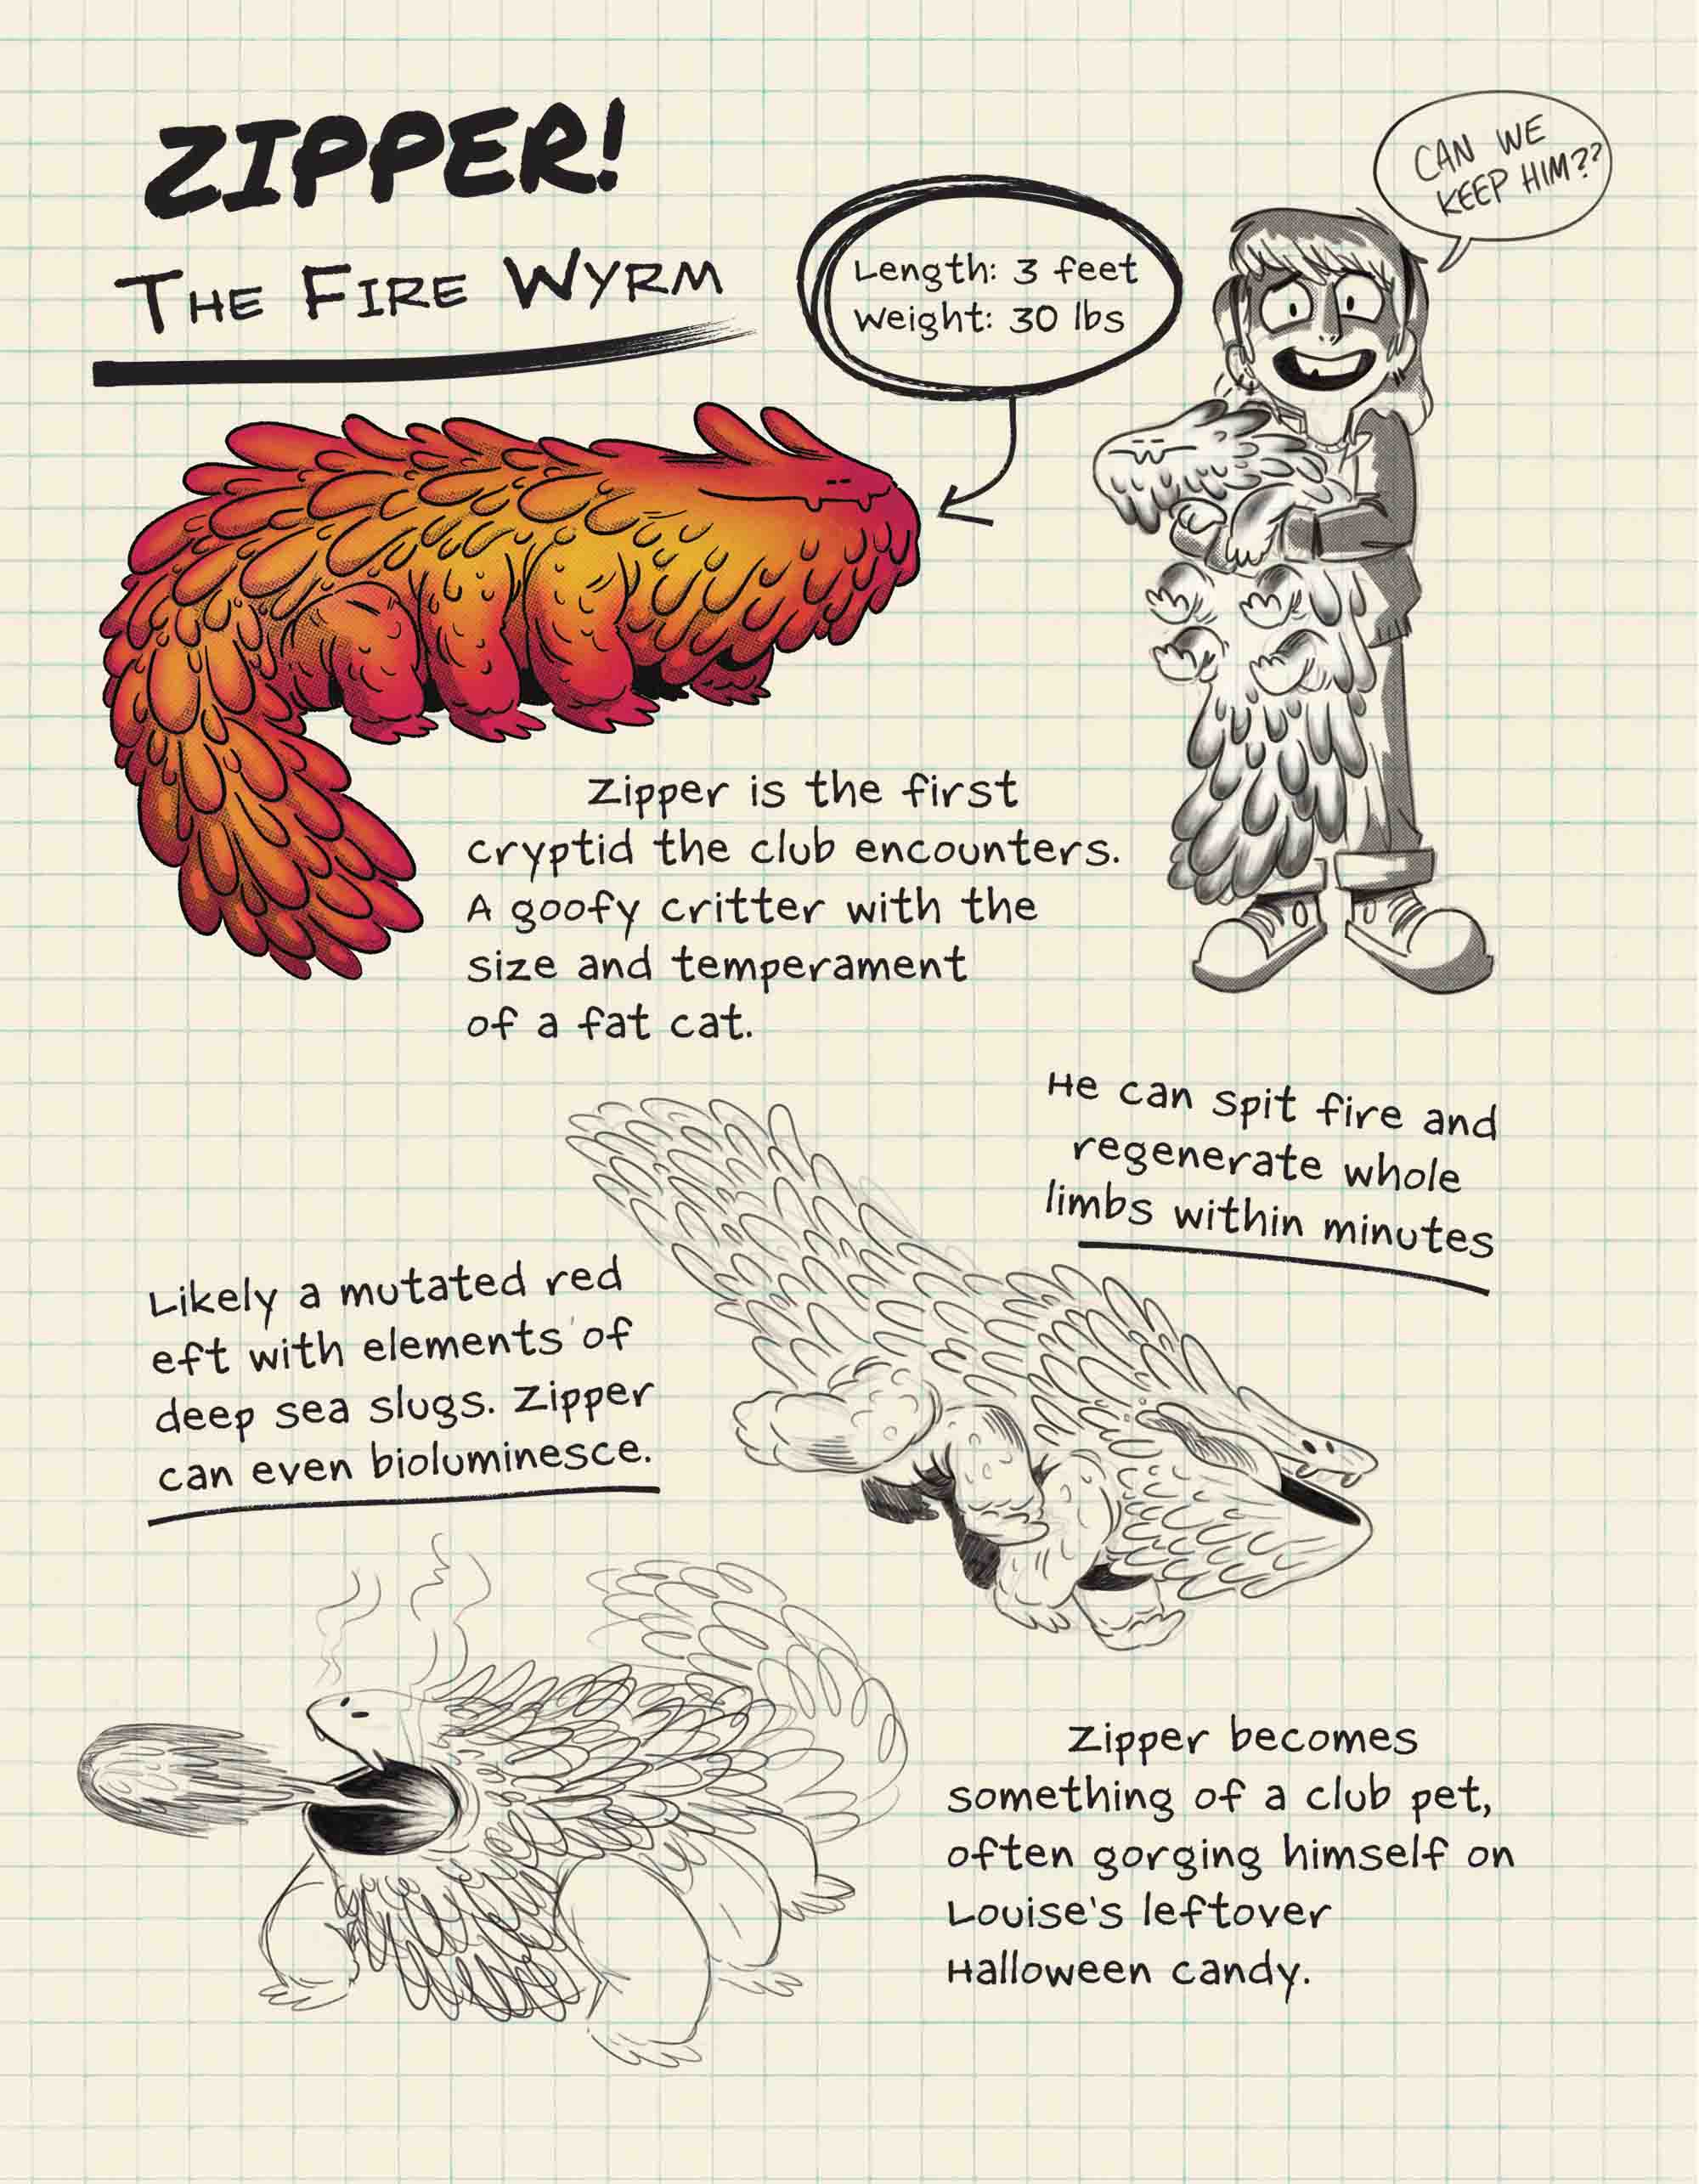 ZIPPER!
THE FIRE WYRM
Length: 3 feet
Weight: 30 lbs
CAN WE
KEEP HIM??
Zipper is the first
cryptid the club encounters.
A goofy critter with the
size and temperament
of a fat cat.
He can spit fire and
regenerate whole
limbs within minutes
Likely a mutated red
eft with elements of
deep sea slugs. Zipper
can even bioluminesce.
Zipper becomes
something of a club pet,
often gorging himself on
Louise's leftover
Halloween candy.